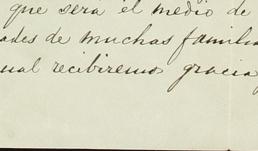 que será el medio de
ades de muchas familia
ual recibiremos gracia